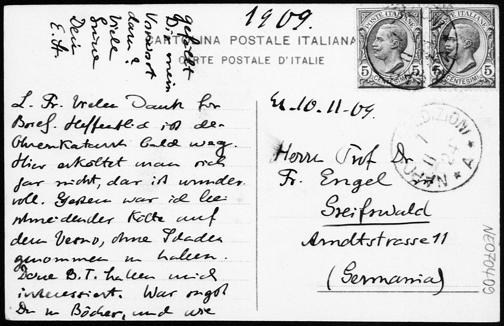 1909.
CARTOLINA POSTALE ITALIANA
CARTE POSTALE D'ITALIE
POSTE ITALIANE
5 CENTESIMI 5
POSTE ITALIANE
5 CENTESIMI 5
L. Fr. Vielen Dank for
Brief. Hoffentlich ist der
Ohrenkatarrh bald weg.
Hier erkältet man sich
gar nicht, das ist wunder
voll. Gestern war ich bei
schneidender Kälte auf
dem Vesuv, ohne Schaden
genommen zu haben.
Deine B.T. haben mich
interessiert. War
Du in Bücher, und wie
gefällt
Dir mein
Vorwort
darin?
Viele
Grüsse
Dein
E. H.
Er. 10.11.09.
Herrn Prof Dr.
Fr. Engel
Greifswald
Arndtstrasse 11
(Germania)
NAPOLI
7 11 24
* A *
NE0704-09